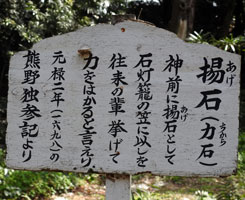 揚石(力石)
あげ
ちから
神前に揚石として
あげ
石灯籠の笠に似しを
往来の輩挙げて
力をはかると言えり
元禄二年(一六九八)の
熊野独参記より